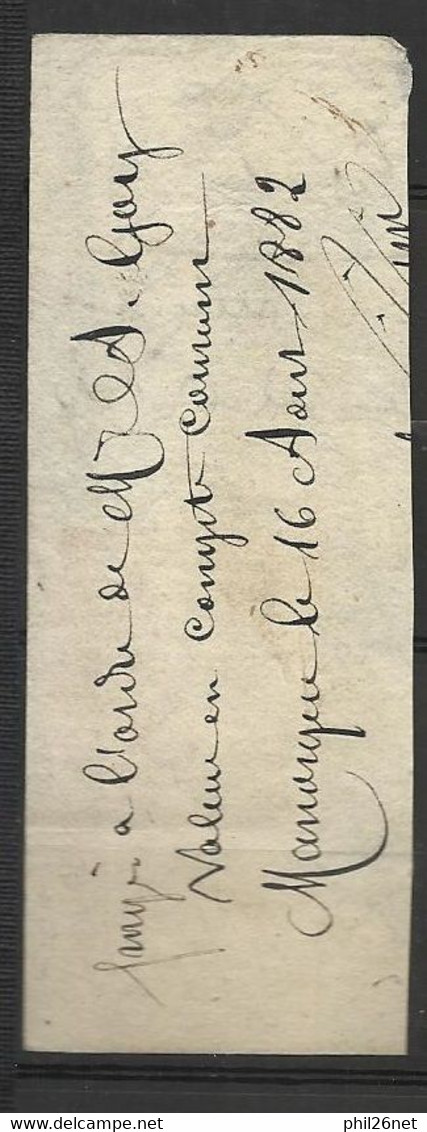 payé à l'ordre de Mr A. Gary
Valeur en compte Courant
Manosque le 16 Aout 1882
www.delcampe.net
phil26net